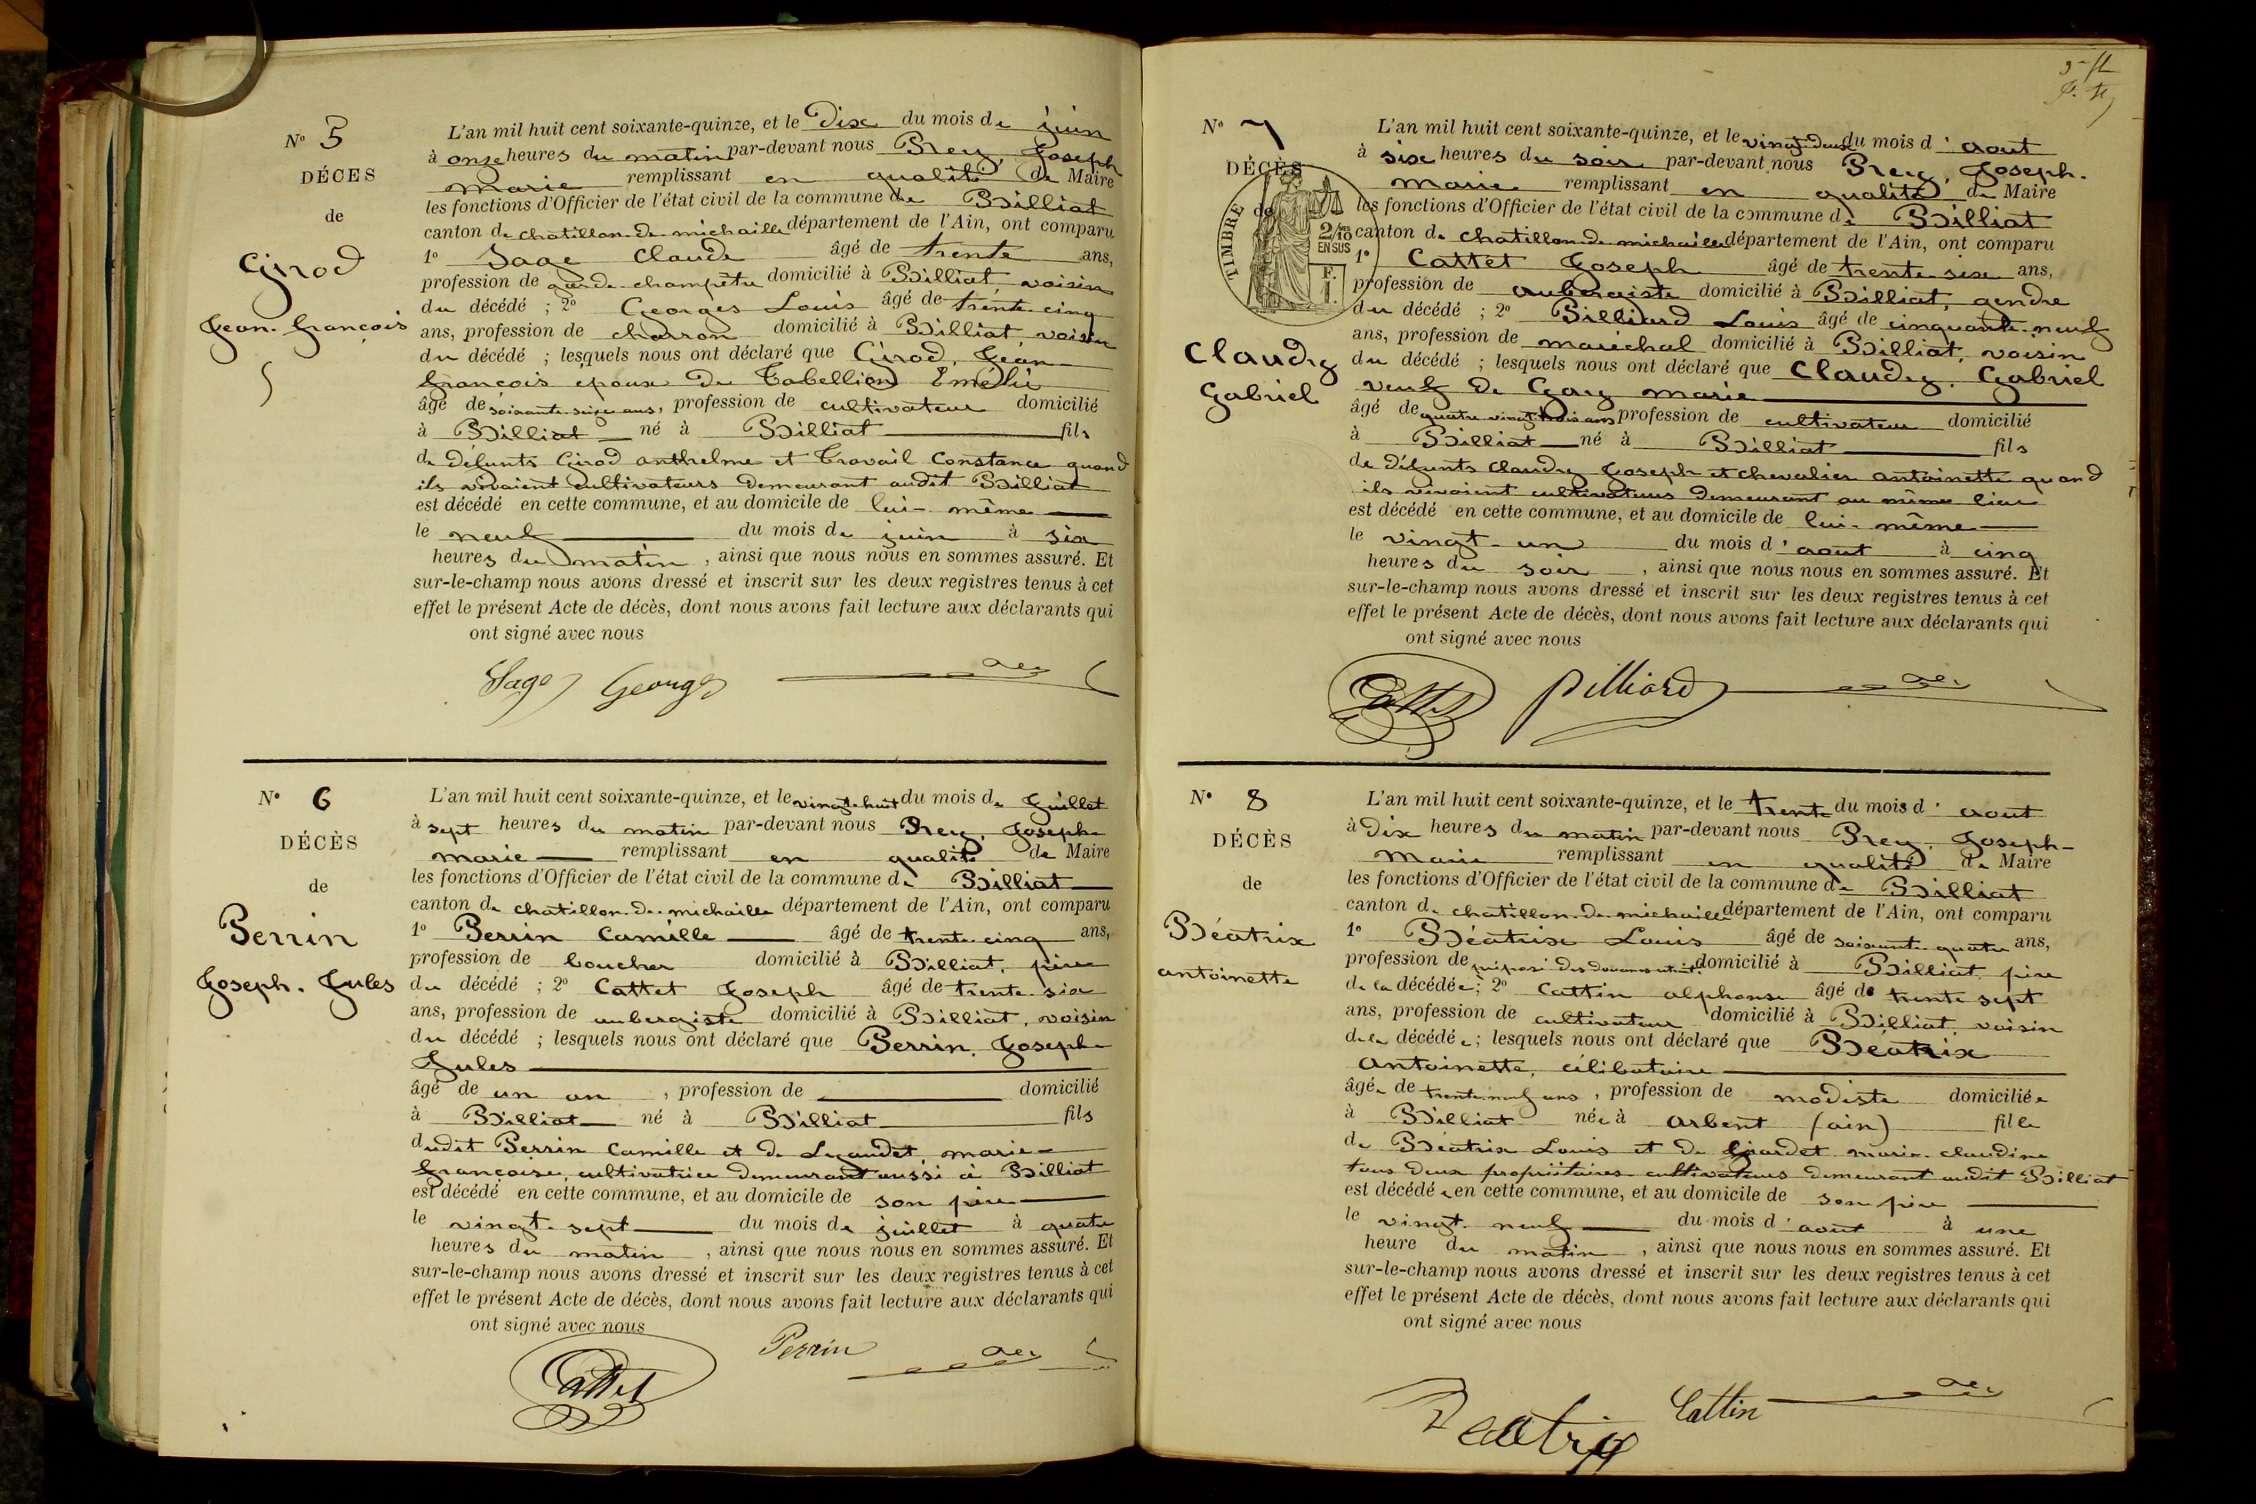 N° 5
DÉCES
de
Girod
Jean-François
L'an mil huit cent soixante-quinze, et le Dix du mois de juin
à onze heures du matin par-devant nous Prey, Joseph
marie remplissant en qualité de Maire
les fonctions d'Officier de l'état civil de la commune de Billiat
canton de chatillon-de-michaille département de l'Ain, ont comparu
1° Sage Claude âgé de trente ans,
profession de garde-champêtre domicilié à Billiat, voisin
du décédé ; 2° Georges Louis âgé de trente-cinq
ans, profession de charron domicilié à Billiat voisin
du décédé ; lesquels nous ont déclaré que Girod, Jean-
François époux de Tabellion Emélie
âgé de soixante-seize ans, profession de cultivateur domicilié
à Billiat né à Billiat fils
de défunts Girod anthelme et Travail Constance quand
ils vivaient cultivateurs demeurant audit Billiat
est décédé en cette commune, et au domicile de lui-même
le neuf du mois de juin à six
heures du matin, ainsi que nous nous en sommes assuré. Et
sur-le-champ nous avons dressé et inscrit sur les deux registres tenus à cet
effet le présent Acte de décès, dont nous avons fait lecture aux déclarants qui
ont signé avec nous
Sage Georges
N° 6
DÉCÈS
de
Perrin
Joseph-Jules
L'an mil huit cent soixante-quinze, et le vingt-huit du mois de Juillet
à sept heures du matin par-devant nous Prey, Joseph-
marie remplissant en qualité de Maire
les fonctions d'Officier de l'état civil de la commune de Billiat
canton de chatillon-de-michaille département de l'Ain, ont comparu
1° Perrin Camille âgé de trente-cinq ans,
profession de boucher domicilié à Billiat, père
du décédé ; 2° Cattet Joseph âgé de trente-six
ans, profession de aubergiste domicilié à Billiat, voisin
du décédé ; lesquels nous ont déclaré que Perrin, Joseph-
Jules
âgé de un an, profession de domicilié
à Billiat né à Billiat fils
dudit Perrin Camille et de marie-
françoise, cultivatrice demeurant aussi à Billiat
est décédé en cette commune, et au domicile de son père
le vingt-sept du mois de juillet à quatre
heures du matin, ainsi que nous nous en sommes assuré. Et
sur-le-champ nous avons dressé et inscrit sur les deux registres tenus à cet
effet le présent Acte de décès, dont nous avons fait lecture aux déclarants qui
ont signé avec nous
Cattet Perrin
N° 7
DÉCÈS
de
TIMBRE
2/10
EN SUS
Claudy
Gabriel
L'an mil huit cent soixante-quinze, et le vingt-deux du mois d'aout
à six heures du soir par-devant nous Prey, Joseph-
marie remplissant en qualité de Maire
les fonctions d'Officier de l'état civil de la commune de Billiat
canton de chatillon-de-michaille département de l'Ain, ont comparu
1° Cattet Joseph âgé de trente-six ans,
profession de aubergiste domicilié à Billiat, gendre
du décédé ; 2° Billiard Louis âgé de cinquante-neuf
ans, profession de maréchal domicilié à Billiat, voisin
du décédé ; lesquels nous ont déclaré que Claudy, Gabriel
veuf de Gay marie
âgé de quatre vingt trois ans profession de cultivateur domicilié
à Billiat né à Billiat fils
de défunts Claudy Joseph et chevalier antoinette quand
ils vivaient cultivateurs demeurant au même lieu
est décédé en cette commune, et au domicile de lui-même
le vingt-un du mois d'aout à cinq
heures du soir, ainsi que nous nous en sommes assuré. Et
sur-le-champ nous avons dressé et inscrit sur les deux registres tenus à cet
effet le présent Acte de décès, dont nous avons fait lecture aux déclarants qui
ont signé avec nous
Cattet Billiard
N° 8
DÉCÈS
de
Béatrix
antoinette
L'an mil huit cent soixante-quinze, et le trente du mois d'aout
à dix heures du matin par-devant nous Prey, Joseph-
Marie remplissant en qualité de Maire
les fonctions d'Officier de l'état civil de la commune de Billiat
canton de chatillon-de-michaille département de l'Ain, ont comparu
1° Béatrix Louis âgé de soixante-quatre ans,
profession de préposé des douanes domicilié à Billiat père
de la décédée ; 2° Cattin alphonse âgé de trente sept
ans, profession de cultivateur domicilié à Billiat, voisin
de la décédée ; lesquels nous ont déclaré que Béatrix
antoinette, célibataire
âgée de trente-neuf ans, profession de modiste domiciliée
à Billiat née à arbent (ain) fille
de Béatrix Louis et de marie-claudine
tous deux propriétaires cultivateurs demeurant audit Billiat
est décédée en cette commune, et au domicile de son père
le vingt-neuf du mois d'aout à une
heure du matin, ainsi que nous nous en sommes assuré. Et
sur-le-champ nous avons dressé et inscrit sur les deux registres tenus à cet
effet le présent Acte de décès, dont nous avons fait lecture aux déclarants qui
ont signé avec nous
Beatrix Cattin